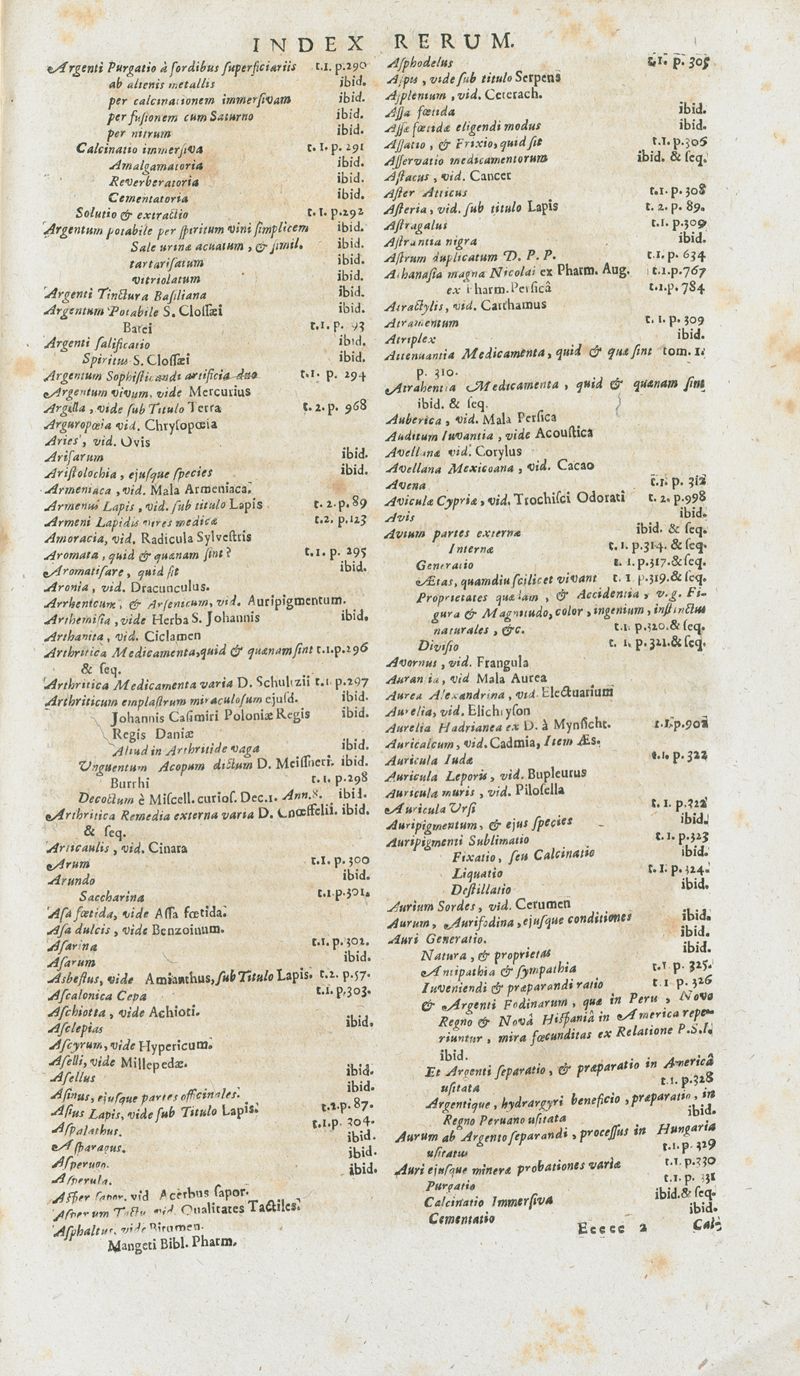 INDEX RERUM.
Argenti Purgatio à ſordibus ſuperficiariis t.1. p.290
ab alienis metallis ibid.
per calcinationem immerſivam ibid.
per fuſionem cum Saturno ibid.
per nitrum ibid.
Calcinatio immerſiva t.1. p. 291
Amalgamatoria ibid.
Reverberatoria ibid.
Cementatoria ibid.
Solutio & extractio t.1. p.292
Argentum potabile per ſpiritum vini ſimplicem ibid.
Sale urinæ acuatum, & ſimil. ibid.
tartariſatum ibid.
vitriolatum ibid.
Argenti Tinctura Baſiliana ibid.
Argentum Potabile S. Cloſſæi ibid.
Barei t.1. p. 93
Argenti ſalificatio ibid.
Spiritus S. Cloſſæi ibid.
Argentum Sophiſticandi artificia duo t.1. p. 294
Argentum vivum, vide Mercurius
Argilla, vide ſub Titulo Terra t.2.p. 968
Arguropœia vid. Chryſopœia
Aries, vid. Ovis
Ariſarum ibid.
Ariſtolochia, ejuſque ſpecies ibid.
Armeniaca, vid. Mala Armeniaca.
Armenus Lapis, vid. ſub titulo Lapis t. 2. p. 89
Armeni Lapidis vires medicæ t.2. p.123
Amoracia, vid. Radicula Sylveſtris
Aromata, quid & quænam ſint? t.1. p. 295
Aromatiſare, quid ſit ibid.
Aronia, vid. Dracunculus.
Arrhenicum, & Arſenicum, vid. Auripigmentum.
Arthemiſia, vide Herba S. Johannis ibid.
Arthanita, vid. Ciclamen
Arthritica Medicamenta, quid & quænam ſint t.1.p.296
& ſeq.
Arthritica Medicamenta varia D. Schultzii t.1. p.297
Arthriticum emplaſtrum miraculoſum ejuſd. ibid.
Johannis Caſimiri Poloniæ Regis ibid.
Regis Daniæ
Aliud in Arthritide vaga ibid.
Unguentum Acopum dictum D. Meiſſneri. ibid.
Burrhi t.1. p.298
Decoctum è Miſcell. curioſ. Dec.1. Ann.8. ibid.
Arthritica Remedia externa varia D. Cnœffelii. ibid.
& ſeq.
Articaulis, vid. Cinara
Arum t.1. p. 300
Arundo ibid.
Saccharina t.1.p.301.
Aſa fœtida, vide Aſſa fœtida.
Aſa dulcis, vide Benzoinum.
Aſarina t.1. p. 302.
Aſarum ibid.
Asbeſtus, vide Amianthus, ſub Titulo Lapis. t.2. p.57.
Aſcalonica Cepa t.1.p.303.
Aſchiotta, vide Achioti.
Aſclepias ibid.
Aſcyrum, vide Hypericum.
Aſelli, vide Millepedæ.
Aſellus ibid.
Aſinus, ejuſque partes officinales. ibid.
Aſius Lapis, vide ſub Titulo Lapis. t.2.p. 87.
Aſpalathus. t.1.p. 304.
Aſparagus. ibid.
Aſperugo. ibid.
Aſperula. ibid.
Aſper ſapor. vid Acerbus ſapor.
Aſperum Tactu vid. Qualitates Tactiles.
Aſphaltus, vide Bitumen.
Mangeti Bibl. Pharm.
Aſphodelus t.1. p. 305
Aſpis, vide ſub titulo Serpens
Aſplenium, vid. Ceterach.
Aſſa fœtida ibid.
Aſſæ fœtidæ eligendi modus ibid.
Aſſatio, & Frixio, quid ſit t.1. p.306
Aſſervatio medicamentorum ibid. & ſeq.
Aſtacus, vid. Cancer
Aſter Atticus t.1. p.308
Aſteria, vid. ſub titulo Lapis t. 2. p. 89.
Aſtragalus t.1. p.309
Aſtrantia nigra ibid.
Aſtrum duplicatum D. P. P. t.1. p. 634
Athanaſia magna Nicolai ex Pharm. Aug. t.1.p.767
ex Pharm. Perſicâ t.1.p. 784
Atractylis, vid. Carthamus
Atramentum t. 1. p. 309
Atriplex ibid.
Attenuantia Medicamenta, quid & quæ ſint tom. 1.
p. 310.
Atrahentia Medicamenta, quid & quænam ſint
ibid. & ſeq.
Auberica, vid. Mala Perſica
Auditum Iuvantia, vide Acouſtica
Avellana vid. Corylus
Avellana Mexicoana, vid. Cacao
Avena t.1. p. 312
Aviculæ Cypriæ, vid. Trochiſci Odorati t. 2. p.998
Avis ibid.
Avium partes externæ ibid. & ſeq.
Internæ t. 1. p.314. & ſeq.
Generatio t. 1.p.317.& ſeq.
Ætas, quamdiu ſcilicet vivant t. 1 p.319.& ſeq.
Proprietates quædam, & Accidentia, v.g. Fi-
gura & Magnitudo, color, ingenium, inſtinctus
naturales, &c. t.1. p.320.& ſeq.
Diviſio t. 1. p.321.& ſeq.
Avornus, vid. Frangula
Aurantia, vid Mala Aurea
Aurea Alexandrina, vid. Electuarium
Aurelia, vid. Elichryſon
Aurelia Hadrianea ex D. à Mynſicht. t.1.p.902
Auricalcum, vid. Cadmia, Item Æs.
Auricula Iudæ t.1. p. 322
Auricula Leporis, vid. Bupleurus
Auricula muris, vid. Piloſella
Auricula Urſi t. 1. p.322
Auripigmentum, & ejus ſpecies ibid.
Auripigmenti Sublimatio t. 1. p.323
Fixatio, ſeu Calcinatio ibid.
Liquatio t.1. p.324.
Deſtillatio ibid.
Aurium Sordes, vid. Cerumen
Aurum, Aurifodina, ejuſque conditiones ibid.
Auri Generatio. ibid.
Natura, & proprietas ibid.
Antipathia & ſympathia t.1 p. 325.
Inveniendi & præparandi ratio t.1 p. 326
& Argenti Fodinarum, quæ in Peru, Novo
Regno & Novâ Hiſpaniâ in America repe-
riuntur, mira fœcunditas ex Relatione P.S.I.
ibid.
Et Argenti ſeparatio, & præparatio in Americâ
uſitata t.1. p.328
Argentique, hydrargyri beneficio, præparatio, in
Regno Peruano uſitata ibid.
Aurum ab Argento ſeparandi, proceſſus in Hungaria
uſitatus t.1.p. 329
Auri ejuſque mineræ probationes variæ t.1. p.330
Purgatio t.1. p. 331
Calcinatio Immerſiva ibid.& ſeq.
Cementatio ibid.
Eeeee 2 Cal-